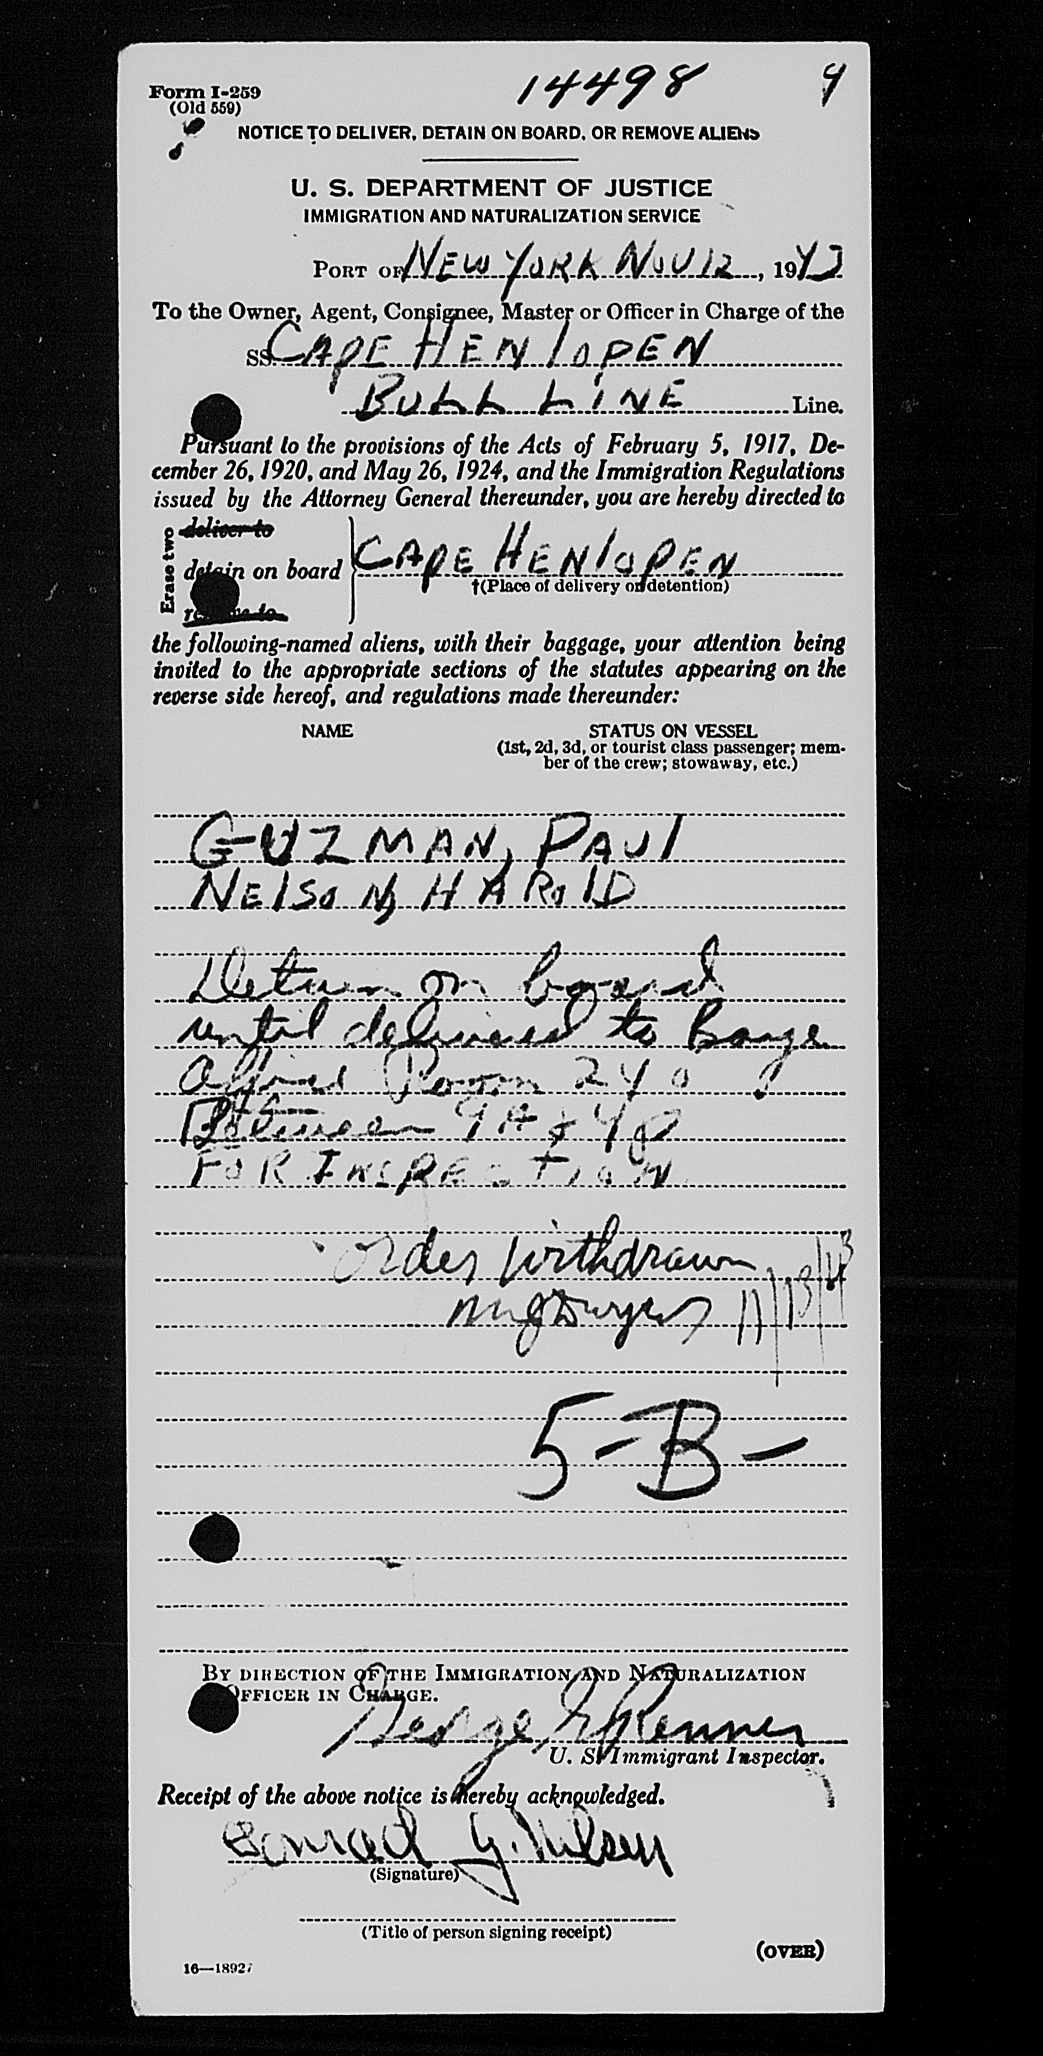 Form I-259
(Old 559)
14498
4
NOTICE TO DELIVER, DETAIN ON BOARD, OR REMOVE ALIENS
U. S. DEPARTMENT OF JUSTICE
IMMIGRATION AND NATURALIZATION SERVICE
PORT OF NEW YORK NOV 12, 1943
To the Owner, Agent, Consignee, Master or Officer in Charge of the
SS. CAPE HENLOPEN
BULL LINE Line.
Pursuant to the provisions of the Acts of February 5, 1917, De-
cember 26, 1920, and May 26, 1924, and the Immigration Regulations
issued by the Attorney General thereunder, you are hereby directed to
Erase two
deliver to
detain on board
remove to
CAPE HENLOPEN
†(Place of delivery or detention)
the following-named aliens, with their baggage, your attention being
invited to the appropriate sections of the statutes appearing on the
reverse side hereof, and regulations made thereunder:
NAME STATUS ON VESSEL
(1st, 2d, 3d, or tourist class passenger; mem-
ber of the crew; stowaway, etc.)
GUZMAN, PAUL
NELSON, HAROLD
Detain on board
until delivered to Barge
Office Room 240
Between 9A & 4P
FOR INSPECTION
Order Withdrawn
11/13/43
5-B-
BY DIRECTION OF THE IMMIGRATION AND NATURALIZATION
OFFICER IN CHARGE.
George Renner
U. S. Immigrant Inspector.
Receipt of the above notice is hereby acknowledged.
Conrad G. Nilsen
(Signature)
(Title of person signing receipt)
(OVER)
16—18927